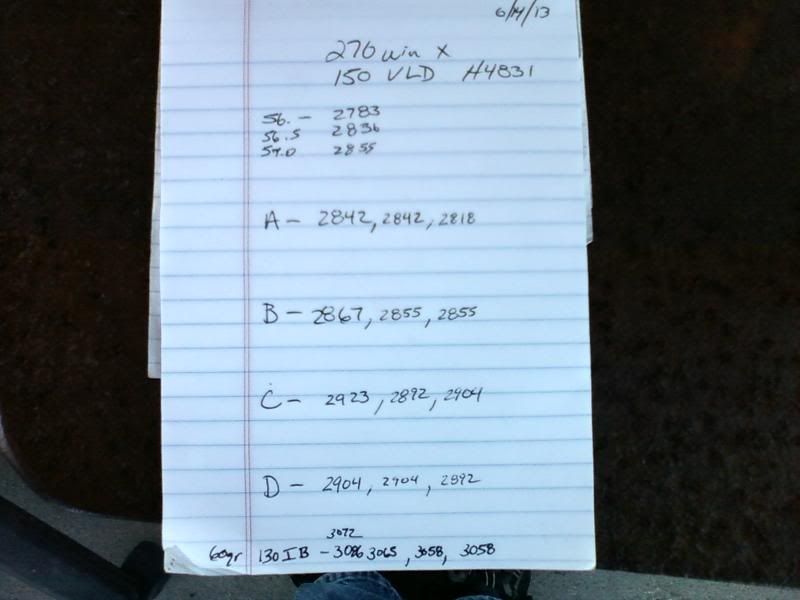 6/14/13
270 win x
150 VLD H4831
56. - 2783
56.5 2836
57.0 2855
A - 2842, 2842, 2818
B - 2867, 2855, 2855
C - 2923, 2892, 2904
D - 2904, 2904, 2892
3072
60gr 130 IB - 3086 3065, 3058, 3058